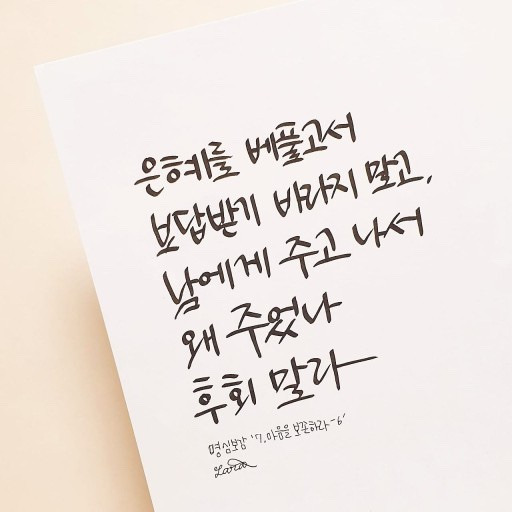 은혜를 베풀고서
보답받기 바라지 말고,
남에게 주고 나서
왜 주었나
후회 말라
명심보감 '7. 마음을 보존하라 -6'
Lara